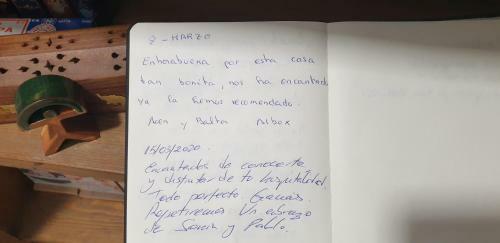 8 - MARZO
Enhorabuena por esta casa
tan bonita, nos ha encantado
ya la hemos recomendado.
y Balta Albox
15/03/2020.
Encantados de conocerte
y disfrutar de tu hospitalidad.
Todo perfecto. Gracias.
Repetiremos. Un abrazo
de y Pablo.